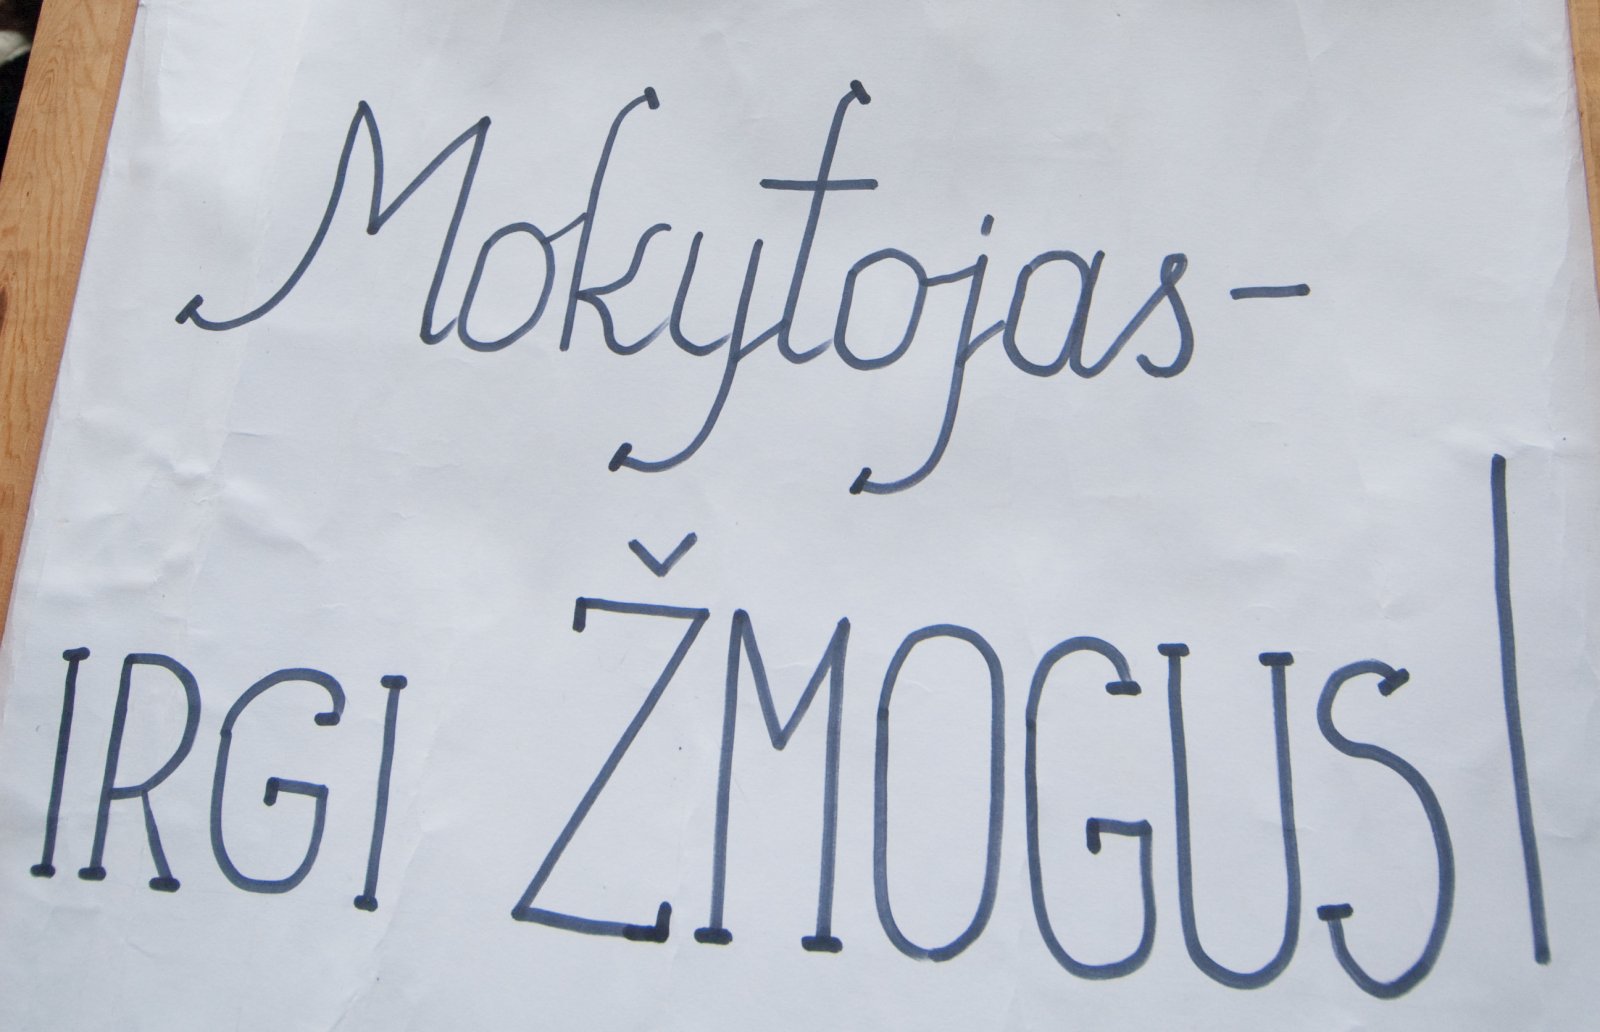 Mokytojas-
IRGI ŽMOGUS!